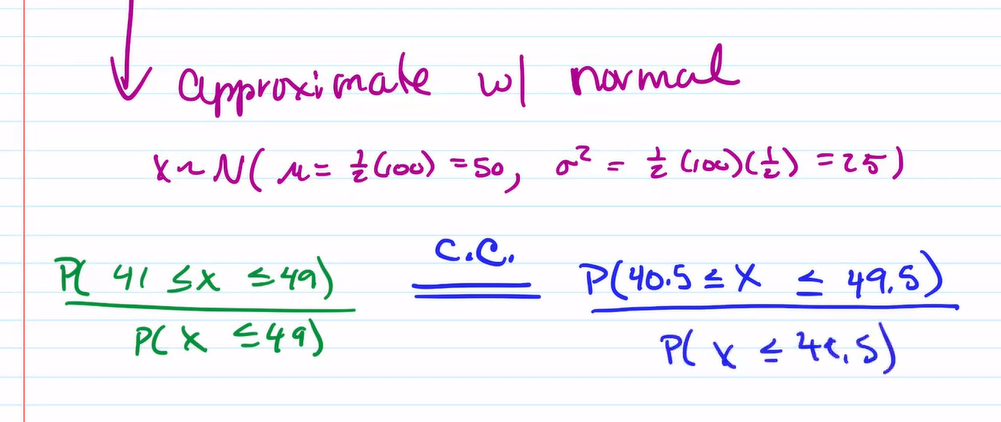 approximate w/ normal
X ~ N( μ = ½(100) = 50, σ² = ½ (100)(½) = 25)
P( 41 ≤ X ≤ 49) / P( X ≤ 49) = C.C. P(40.5 ≤ X ≤ 49.5) / P( X ≤ 49.5)